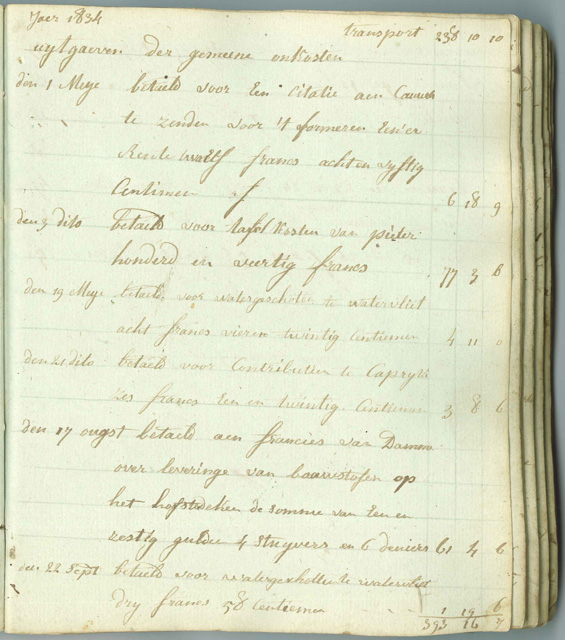 Jaer 1834 transport 238 10 10
uytgaeven der gemeene onkosten
den 1 Meye betaeld voor Een Citatie aen
te zenden voor 't formeren Een'er
Rente twalf francs acht en vyftig
Centimen f 6 18 9
den 3 dito betaeld voor tafel kosten van pieter
honderd en veertig francs 77 3 8
den 19 Meye betaeld voor watergeschoten te watervliet
acht francs vier en twintig Centiemen 4 11 0
den 21 dito betaeld voor Contributien te Capryke
zes francs Een en twintig Centiemen 3 8 6
den 17 ougst betaeld aen francies van Damme
over leveringe van bauwstofen op
het hofstedeken de somme van Een en
zestig gulden 4 stuyvers en 6 deniers 61 4 6
den 22 Sept betaeld voor watergeschotten te watervliet
dry francs 58 Centiemen 1 19 6
393 16 7